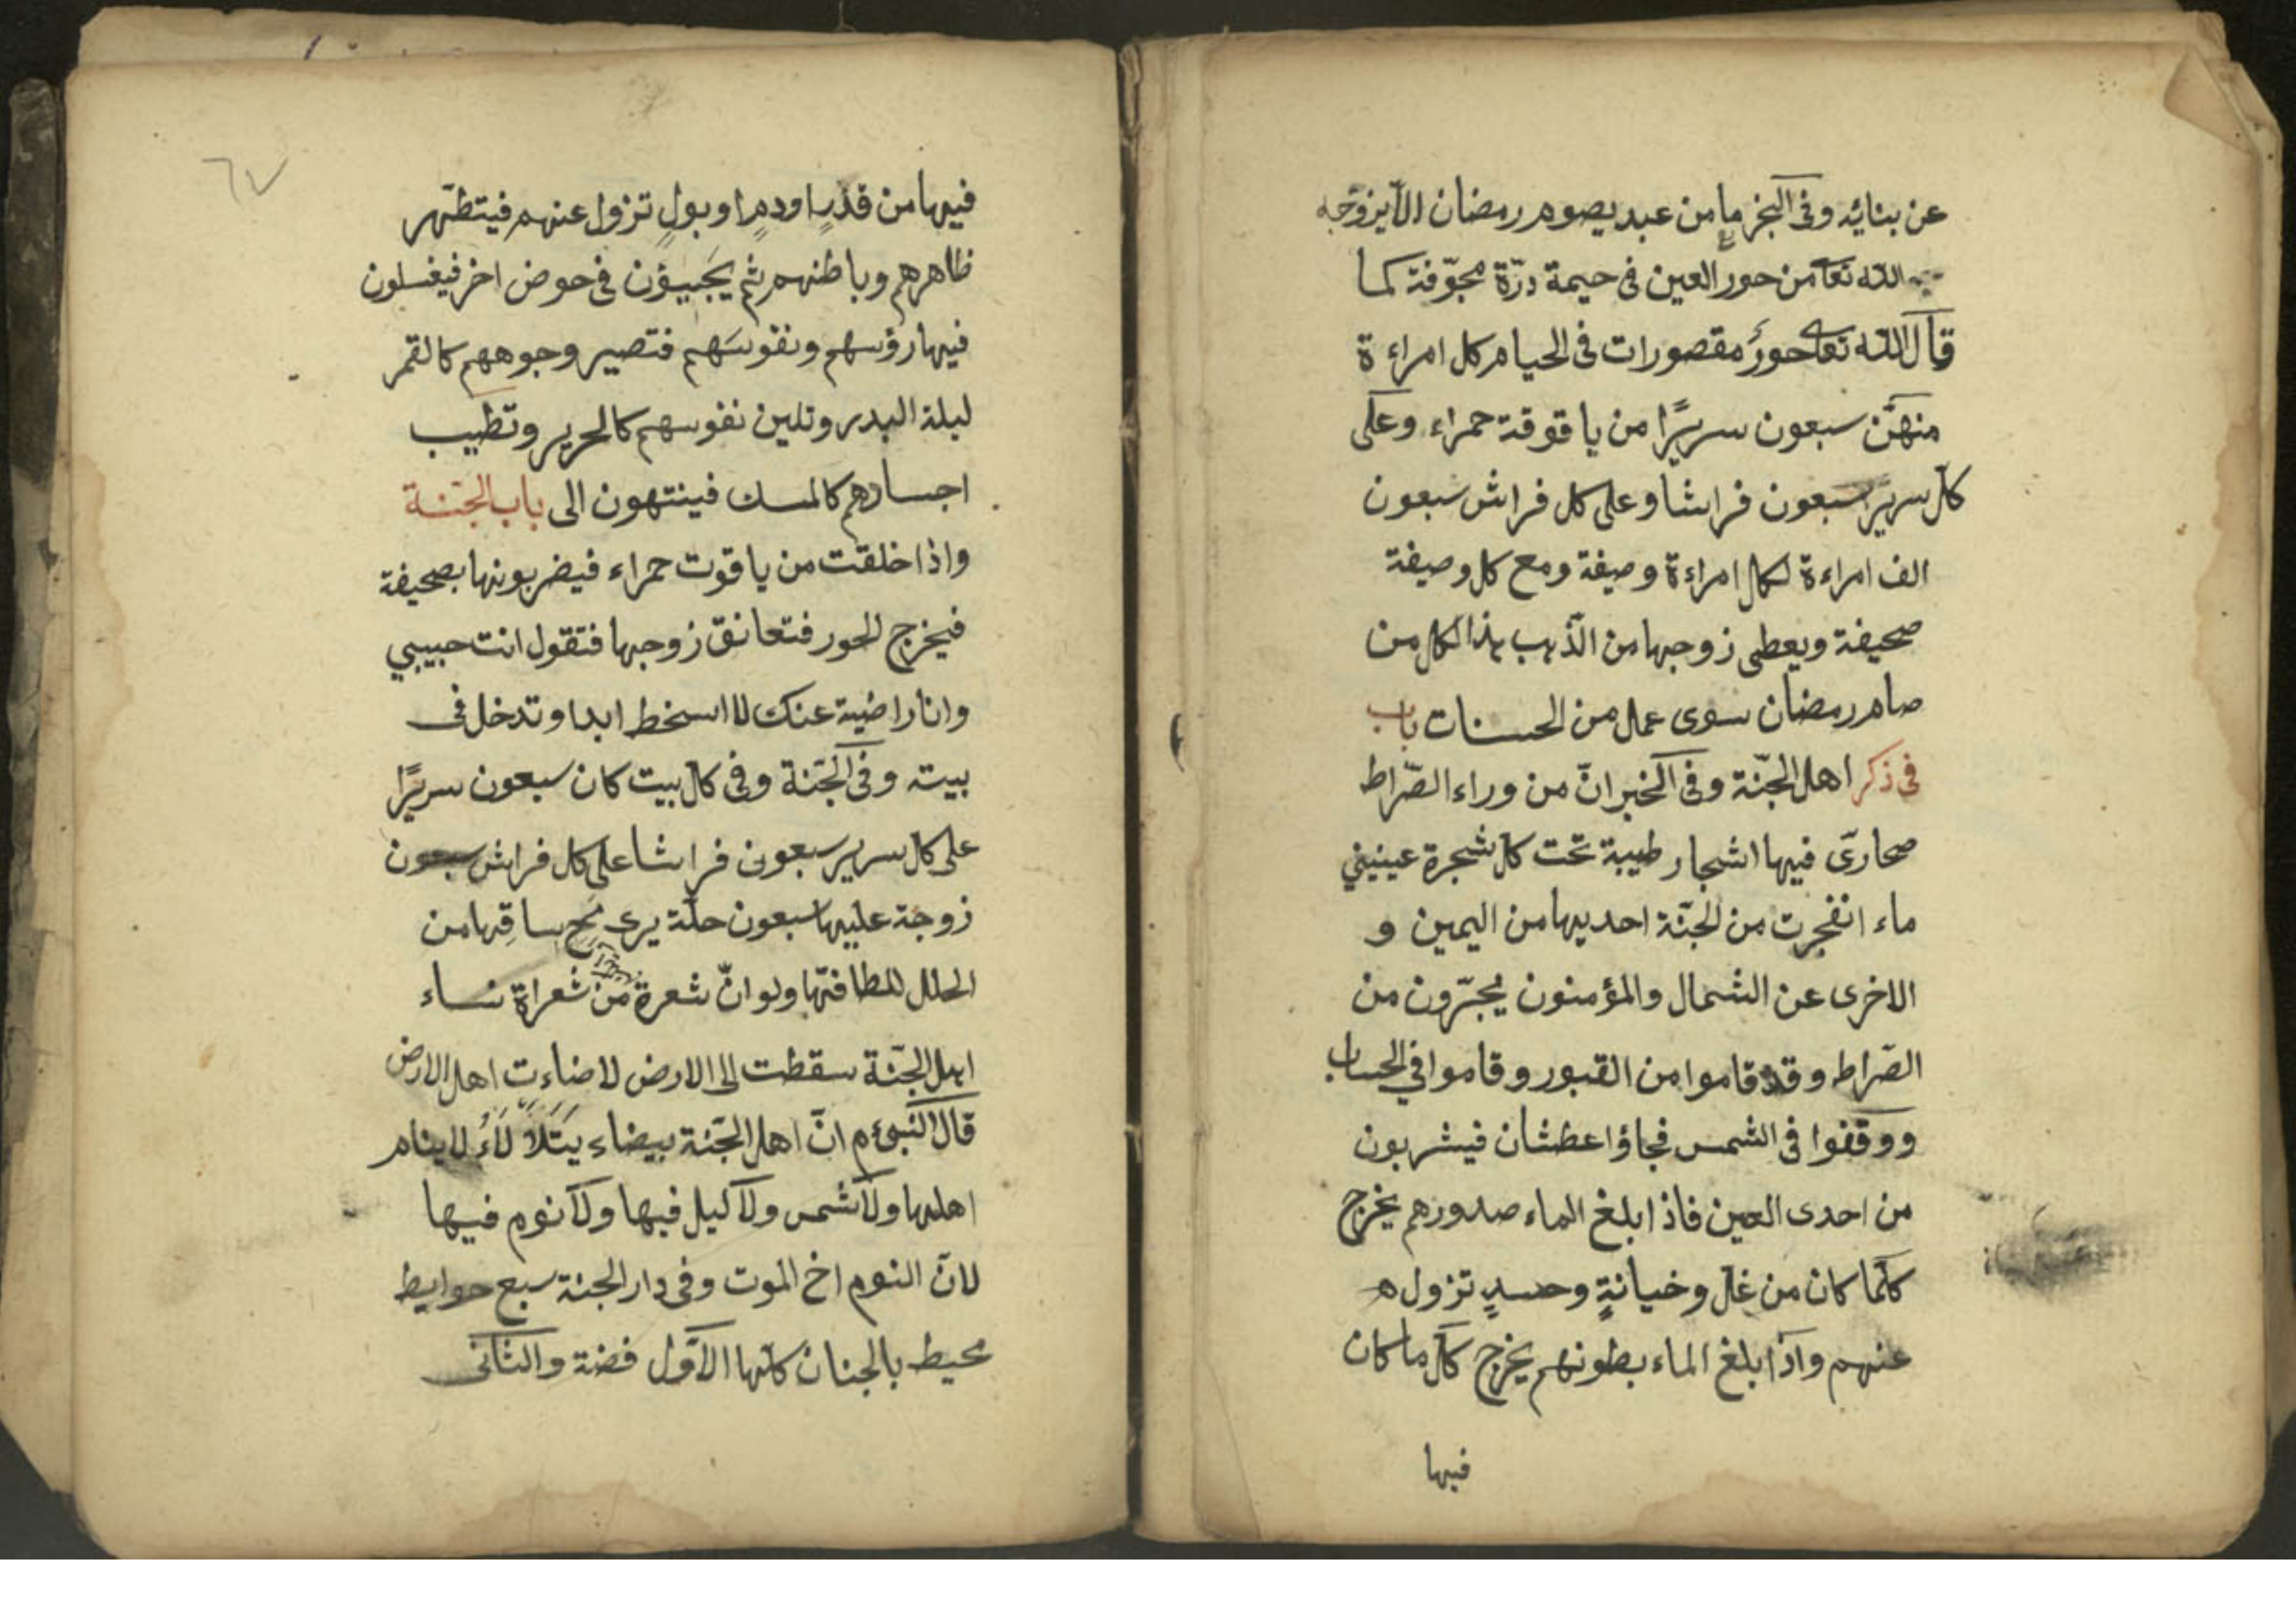 عن بنائه وفى الخبر ما من عبد يصوم رمضان الّا يزوّجه
الله تعا من حور العين فى حيمة درّة مجوّفة كما
قال الله تعالى حور مقصورات فى الحيام كل امراءة
منهنّ سبعون سريرًا من ياقوقة حمراء وعلى
كل سرير سبعون فراشا وعلى كل فراش سبعون
الف امراءة لكل امراءة وصيفة ومع كل وصيفة
صحيفة ويعطى زوجها من الذّهب هذا لكل من
صام رمضان سوى عمل من الحسنات باب
فى ذكر اهل الجنّة وفى الخبر انّ من وراء الصّراط
صحارىَ فيها اشجار طيبة تحت كل شجرة عينيني
ماء انفجرت من الجنّة احديها من اليمين و
الاخرى عن الشمال والمؤمنون يجبّرون من
الصّراط وقد قاموا من القبور وقاموا في الحساب
ووقفوا فى الشمس فجاؤا عطشان فيشربون
من احدى العين فاذا بلغ الماء صدورهم يخرج
كلّما كان من غل وخيانةٍ وحسدٍ تزول ه
عنهم واذا بلغ الماء بطونهم يخرج كل ما كان
فيها
٦٧
فيها من قذرٍ او دمٍ او بولٍ تزول عنهم فيتطهّر
ظاهرهم وباطنهم ثم يَجَبيؤن فى حوض اخر فيغسلون
فيها رؤسهم ونفوسَهم فتصير وجوههم كالقمر
ليلة البدر وتلين نفوسهم كالحرير وتطيب
اجسادهم كالمسك فينتهون الى باب الجنّة
واذا خلقت من ياقوت حمراء فيضربونها بصحيفة
فيخرج الحور فتعانق زوجها فتقول انت حبيبي
وانا راضية عنك لا اسخط ابدا وتدخل فى
بيته وفى الجنّة وفى كل بيت كان سبعون سريرًا
على كل سرير سبعون فراشا على كل فراش سبعون
زوجة عليها سبعون حلّة يرى مخ ساقِها من
الحلل للطافتها ولو انّ شعرة من شعراة نساء
اهل الجنّة سقطت الى الارض لاضاءت اهل الارض
قال النبىء م انّ اهل الجنّة بيضاء يَتَلَأْلَاءُ لا ينام
اهلها ولا شمس ولا ليل فيها ولا نوم فيها
لانّ النوم اخ الموت وفى دار الجنة سبع حوايط
محيط بالجنان كلها الاوّل فضة والثانى